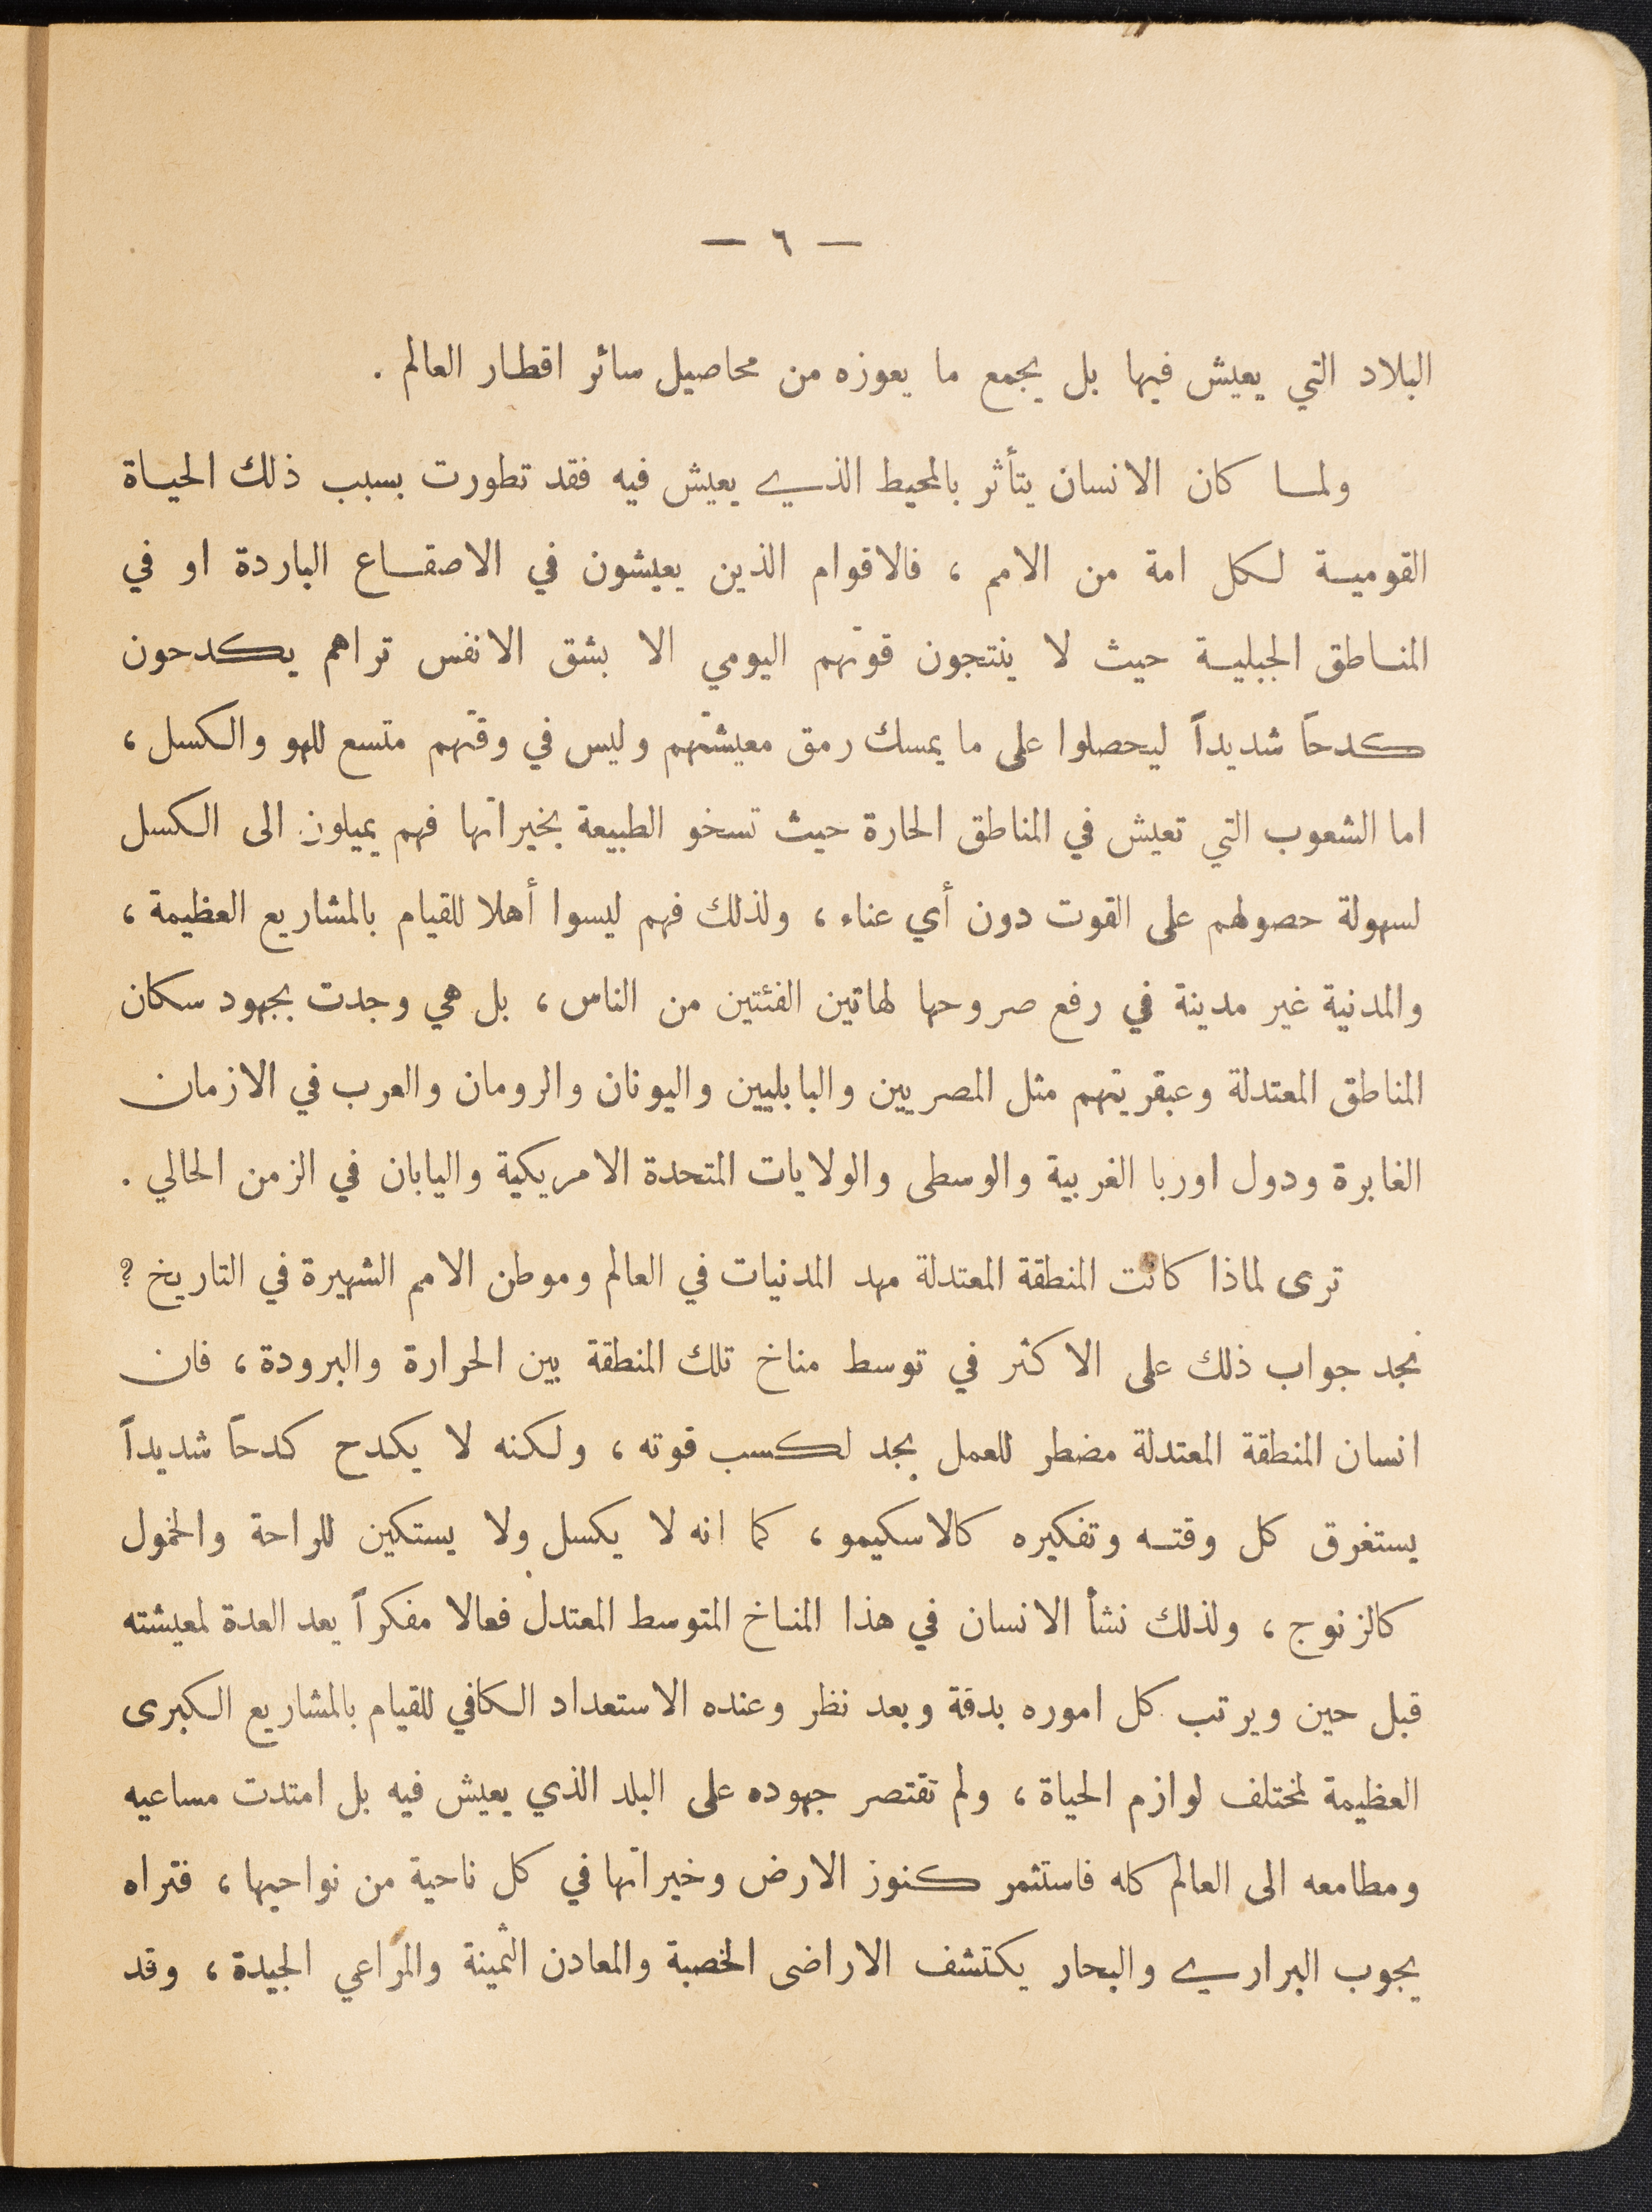 — ٦ —
البلاد التي يعيش فيها بل يجمع ما يعوزه من محاصيل سائر اقطار العالم .
ولما كان الانسان يتأثر بالمحيط الذي يعيش فيه فقد تطورت بسبب ذلك الحياة
القومية لكل امة من الامم ، فالاقوام الذين يعيشون في الاصقاع الباردة او في
المناطق الجبلية حيث لا ينتجون قوتهم اليومي الا بشق الانفس تراهم يكدحون
كدحاً شديداً ليحصلوا على ما يمسك رمق معيشتهم وليس في وقتهم متسع للهو والكسل ،
اما الشعوب التي تعيش في المناطق الحارة حيث تسخو الطبيعة بخيراتها فهم يميلون الى الكسل
لسهولة حصولهم على القوت دون أي عناء ، ولذلك فهم ليسوا أهلا للقيام بالمشاريع العظيمة ،
والمدنية غير مدينة في رفع صروحها لهاتين الفئتين من الناس ، بل هي وجدت بجهود سكان
المناطق المعتدلة وعبقريتهم مثل المصريين والبابليين واليونان والرومان والعرب في الازمان
الغابرة ودول اوربا الغربية والوسطى والولايات المتحدة الامريكية واليابان في الزمن الحالي .
ترى لماذا كانت المنطقة المعتدلة مهد المدنيات في العالم وموطن الامم الشهيرة في التاريخ ؟
نجد جواب ذلك على الاكثر في توسط مناخ تلك المنطقة بين الحرارة والبرودة ، فان
انسان المنطقة المعتدلة مضطر للعمل بجد لكسب قوته ، ولكنه لا يكدح كدحاً شديداً
يستغرق كل وقته وتفكيره كالاسكيمو ، كما انه لا يكسل ولا يستكين للراحة والخمول
كالزنوج ، ولذلك نشأ الانسان في هذا المناخ المتوسط المعتدل فعالا مفكراً يعد العدة لمعيشته
قبل حين ويرتب كل اموره بدقة وبعد نظر وعنده الاستعداد الكافي للقيام بالمشاريع الكبرى
العظيمة لمختلف لوازم الحياة ، ولم تقتصر جهوده على البلد الذي يعيش فيه بل امتدت مساعيه
ومطامعه الى العالم كله فاستثمر كنوز الارض وخيراتها في كل ناحية من نواحيها ، فتراه
يجوب البراري والبحار يكتشف الاراضى الخصبة والمعادن الثمينة والمراعي الجيدة ، وقد